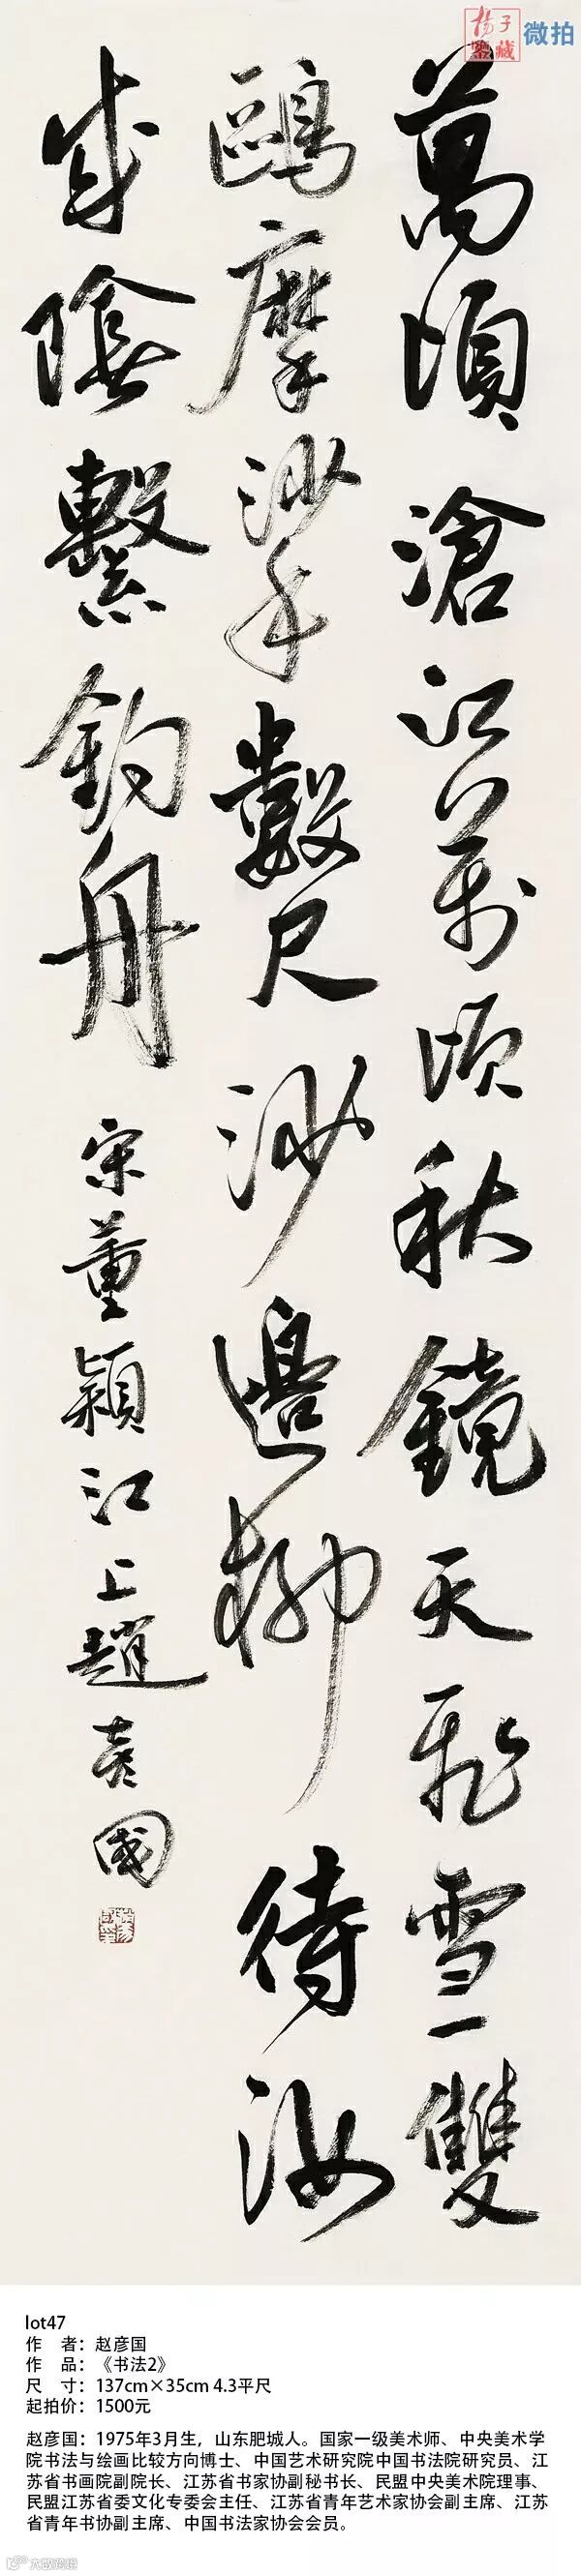 扬子鉴藏 微拍
萬頃滄江萬頃秋鏡天飛雪一雙
鷗摩挲數尺沙邊柳待汝
成陰繫釣舟 宋董穎江上趙彥國
lot47
作 者：赵彦国
作 品：《书法2》
尺 寸：137cm×35cm 4.3平尺
起拍价：1500元
赵彦国：1975年3月生，山东肥城人。国家一级美术师、中央美术学
院书法与绘画比较方向博士、中国艺术研究院中国书法院研究员、江
苏省书画院副院长、江苏省书家协副秘书长、民盟中央美术院理事、
民盟江苏省委文化专委会主任、江苏省青年艺术家协会副主席、江苏
省青年书协副主席、中国书法家协会会员。
大数跨境